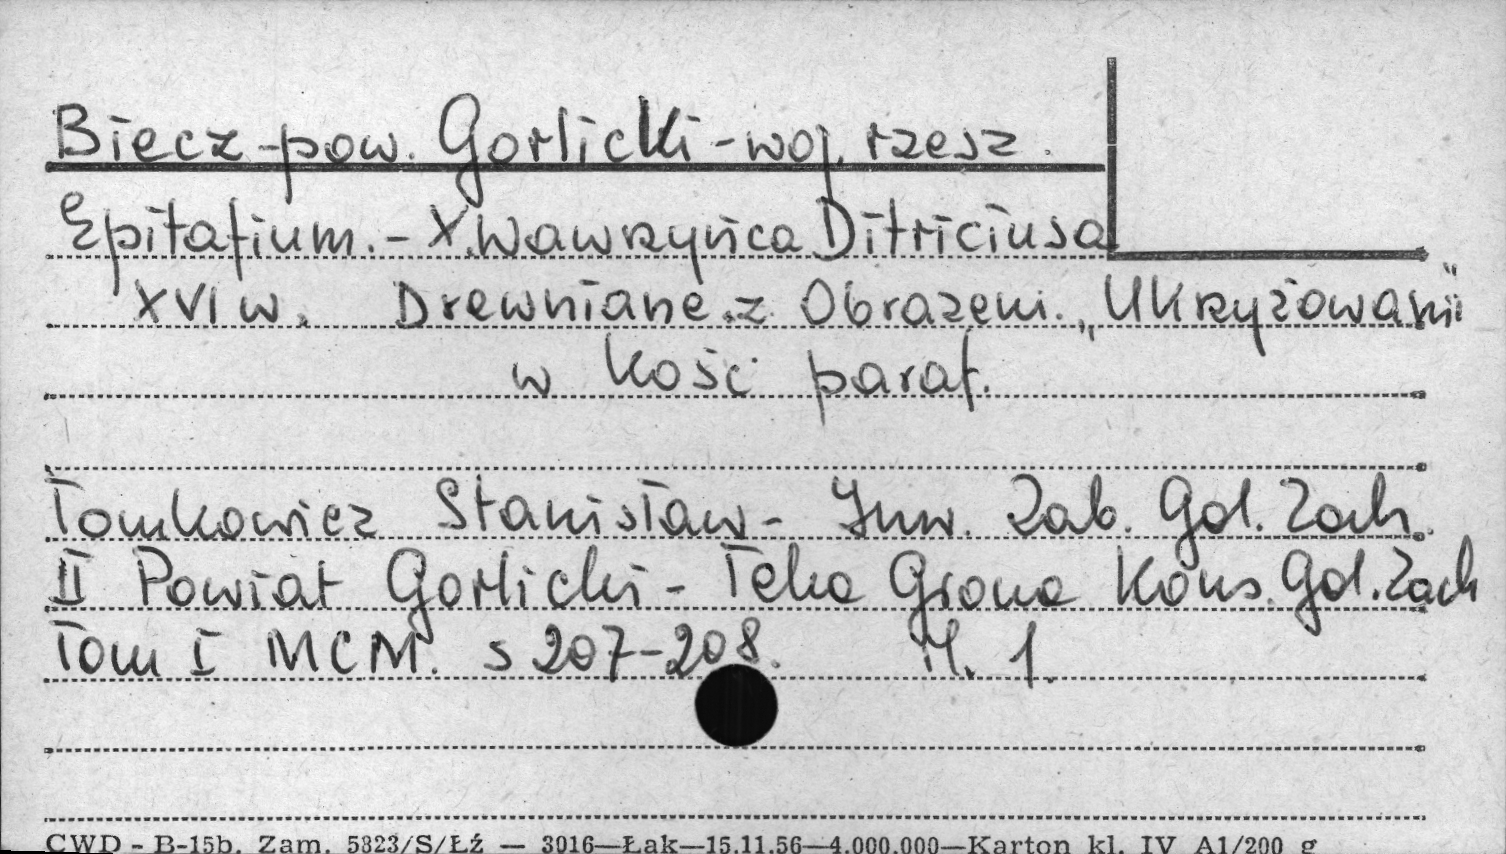 Biecz-pow. Gorlicki-woj. rzesz.
Epitafium.- X. Wawrzyńca Ditriciusa
XVI w. Drewniane.z Obrazem. „Ukrzyżowani"
w kość paraf.
Tomkowicz Stanisław- Inw. Zab. Gal. Zach.
II Powiat Gorlicki - Teka Grona Kons. Gal. Zach
Tom I MCM. s 207-208. il. 1.
CWD - B-15b. Zam. 5823/S/Łź — 3016—Łak—15.11.56—4.000.000—Karton kl. IV A1/200 g